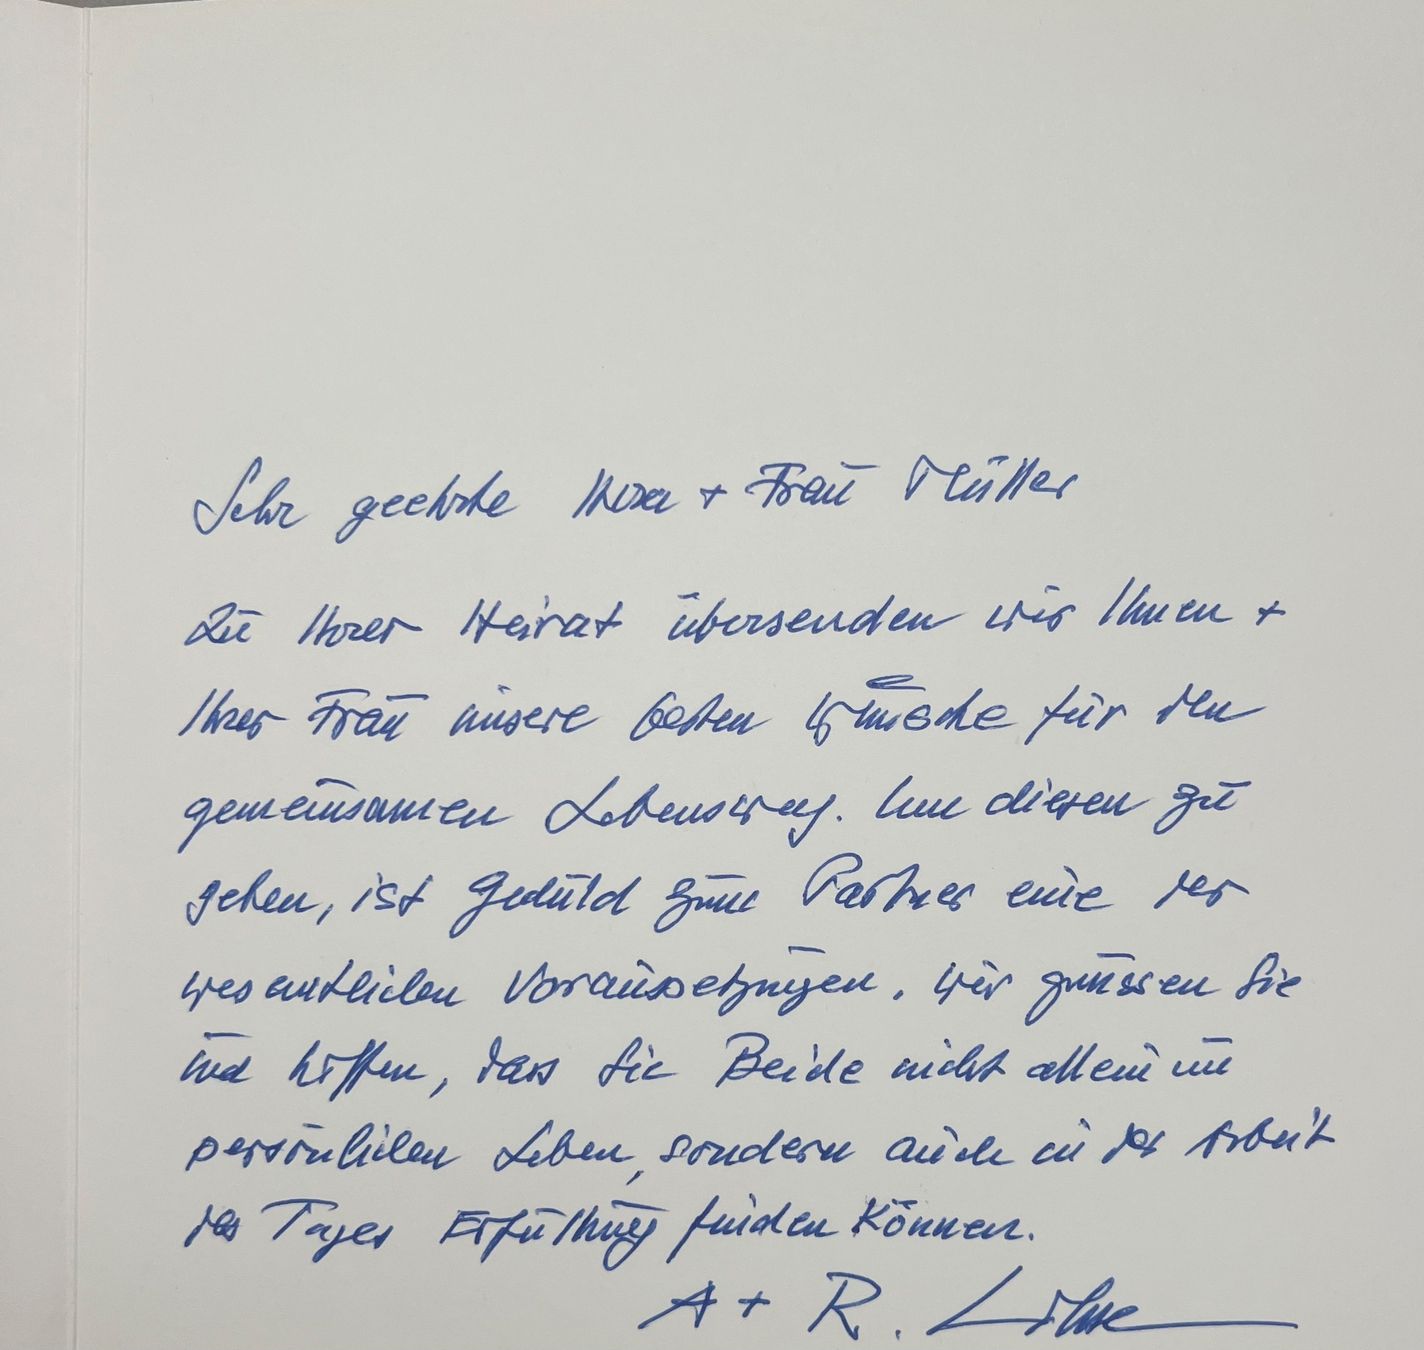 Sehr geehrte Herr + Frau Müller
Zu Ihrer Heirat übersenden wir Ihnen +
Ihrer Frau unsere besten Wünsche für den
gemeinsamen Lebensweg. Um diesen zu
gehen, ist Geduld zum Partner eine der
wesentlichen Voraussetzungen. Wir grüssen Sie
und hoffen, dass Sie Beide nicht allein im
persönlichen Leben, sondern auch in der Arbeit
des Tages Erfüllung finden können.
A + R.